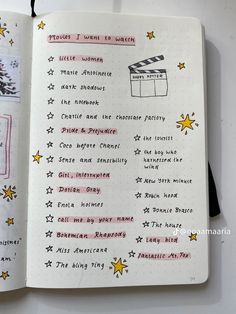 Movies I want to watch
little women
Marie Antoinette
dark shadows
the notebook
Charlie and the chocolate factory
Pride & Prejudice
Coco before Chanel
Sense and sensibility
Girl, interrupted
Dorian Gray
Enola holmes
call me by your name
Bohemian Rhapsody
Miss Americana
The bling ring
HAPPY POTTER
the tourist
the boy who
harnessed the
wind
New York minute
Robin hood
Donnie Brasco
The house
Lady bird
Fantastic Mr. Fox